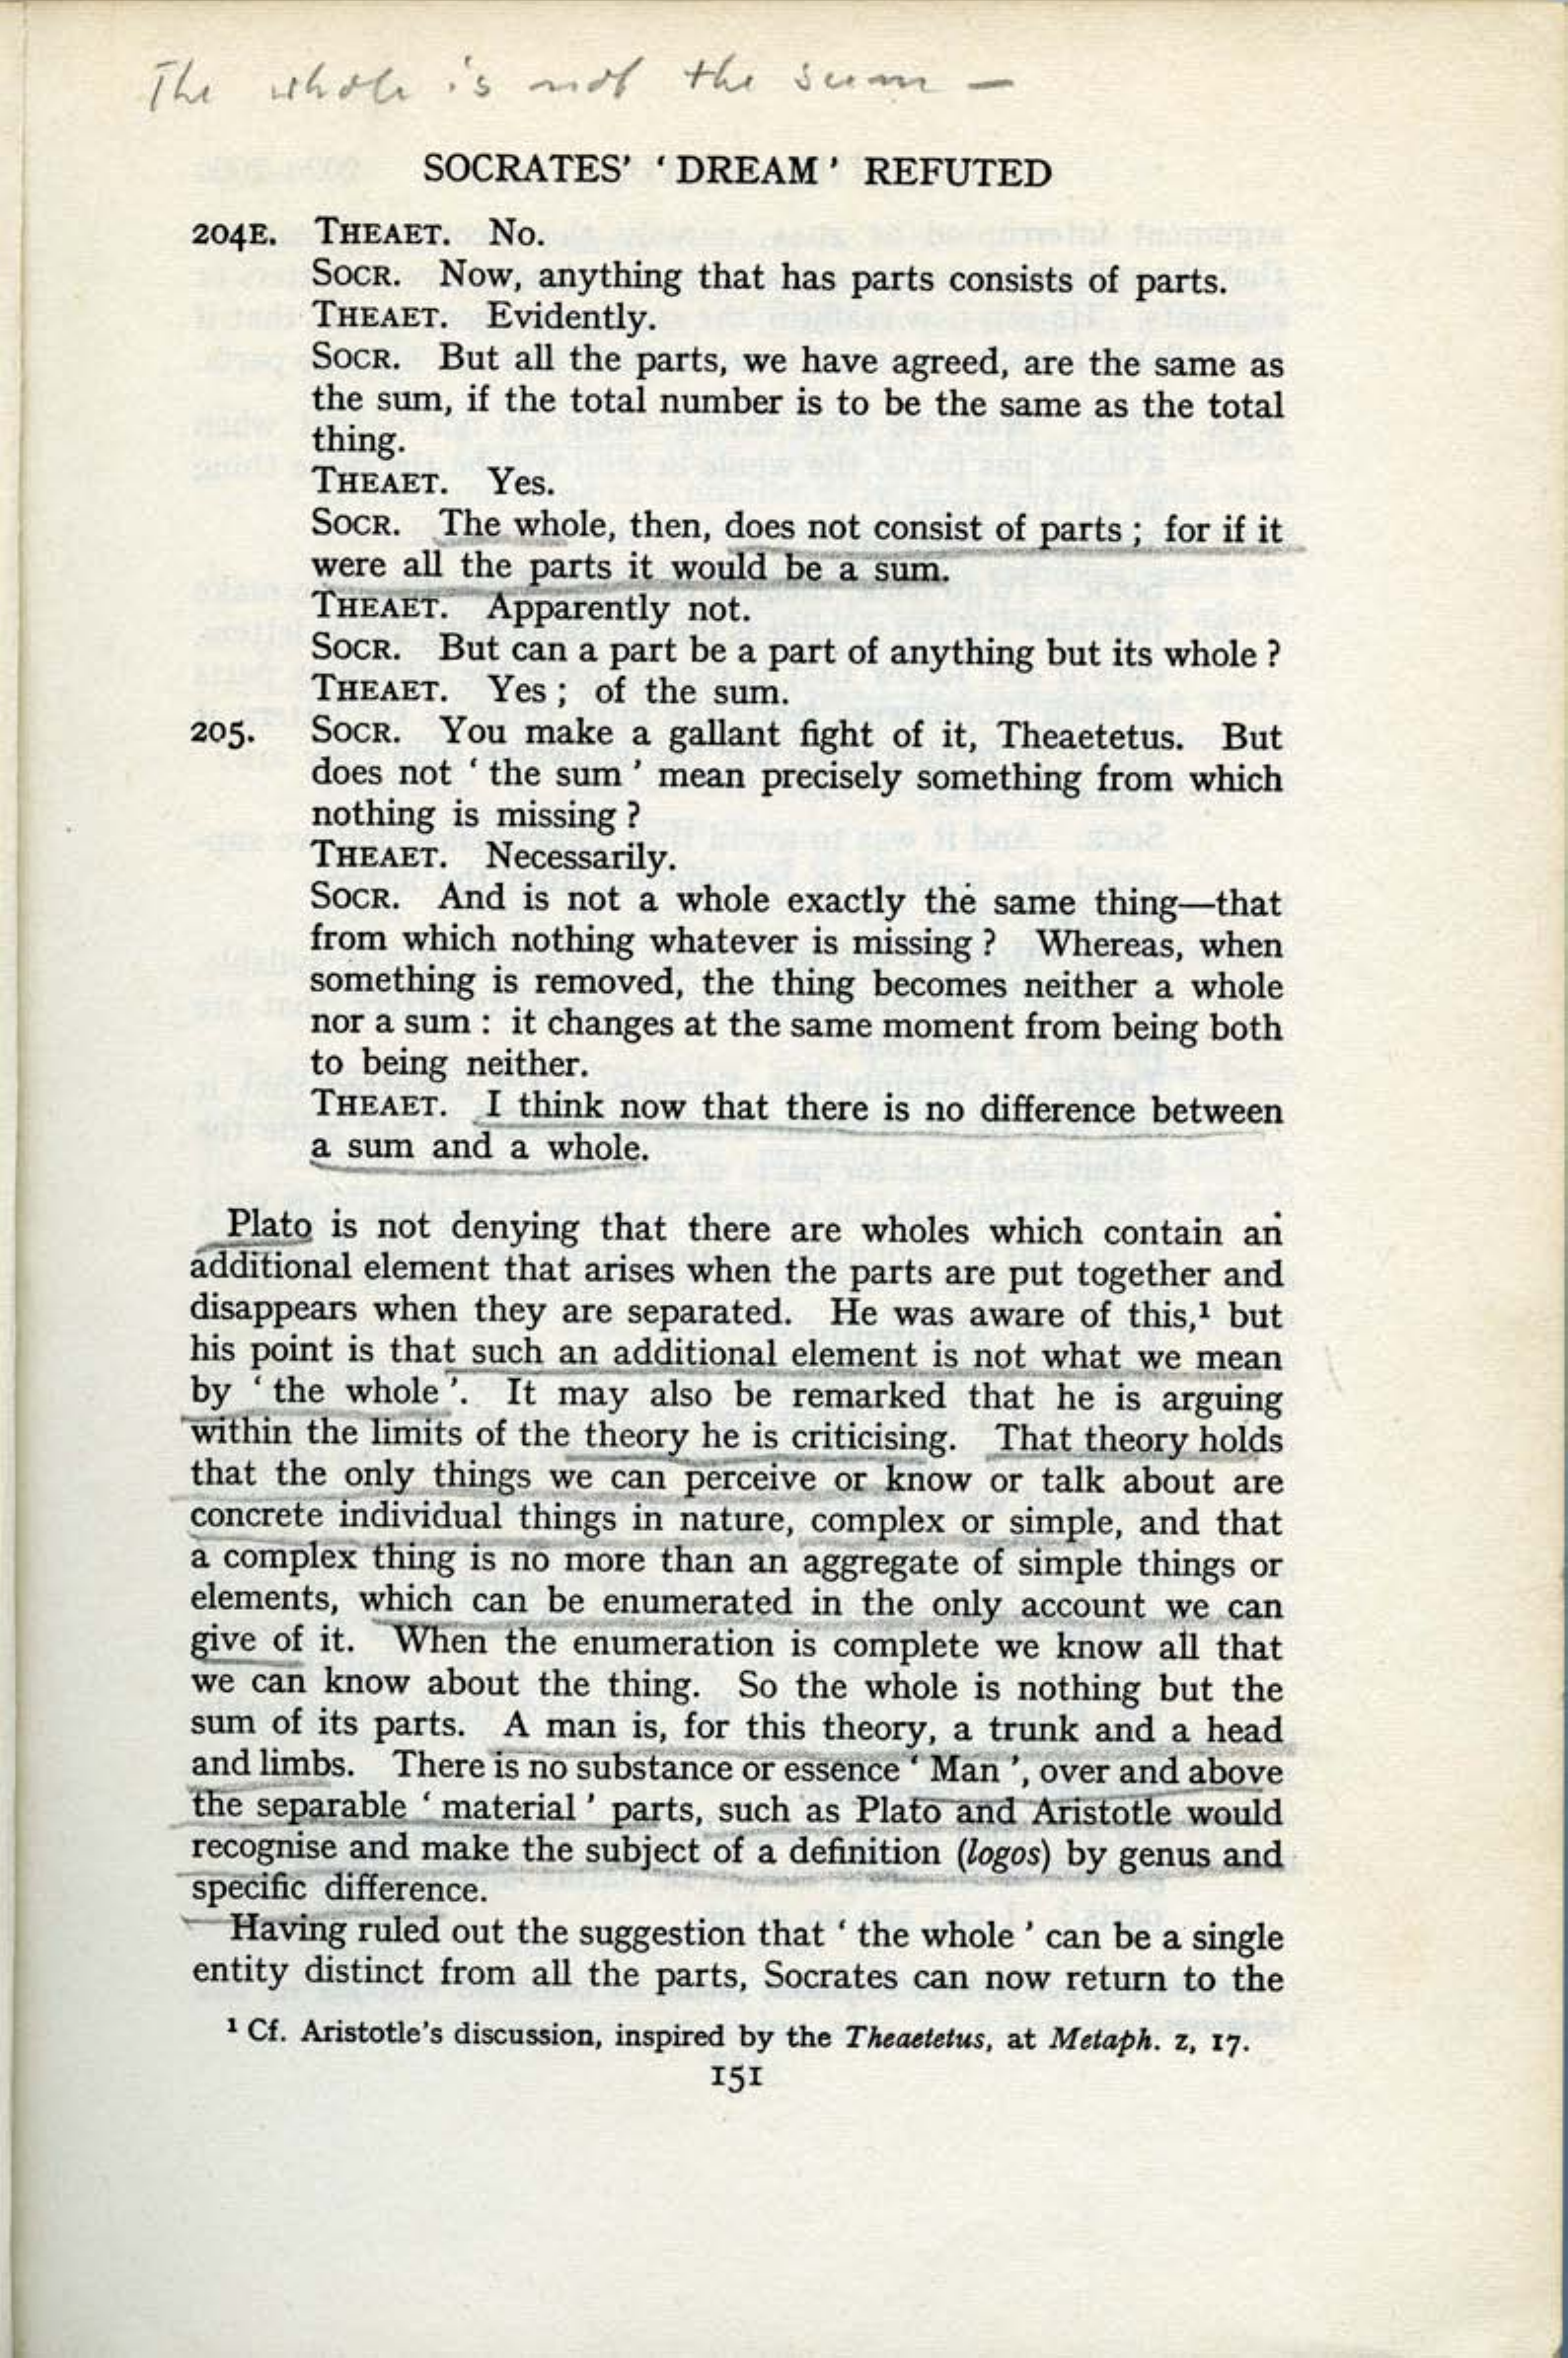 The whole is not the sum —
SOCRATES' ' DREAM ' REFUTED
204E. THEAET. No.
SOCR. Now, anything that has parts consists of parts.
THEAET. Evidently.
SOCR. But all the parts, we have agreed, are the same as
the sum, if the total number is to be the same as the total
thing.
THEAET. Yes.
SOCR. The whole, then, does not consist of parts ; for if it
were all the parts it would be a sum.
THEAET. Apparently not.
SOCR. But can a part be a part of anything but its whole ?
THEAET. Yes ; of the sum.
205. SOCR. You make a gallant fight of it, Theaetetus. But
does not ' the sum ' mean precisely something from which
nothing is missing ?
THEAET. Necessarily.
SOCR. And is not a whole exactly the same thing—that
from which nothing whatever is missing ? Whereas, when
something is removed, the thing becomes neither a whole
nor a sum : it changes at the same moment from being both
to being neither.
THEAET. I think now that there is no difference between
a sum and a whole.
Plato is not denying that there are wholes which contain an
additional element that arises when the parts are put together and
disappears when they are separated. He was aware of this,¹ but
his point is that such an additional element is not what we mean
by ' the whole '. It may also be remarked that he is arguing
within the limits of the theory he is criticising. That theory holds
that the only things we can perceive or know or talk about are
concrete individual things in nature, complex or simple, and that
a complex thing is no more than an aggregate of simple things or
elements, which can be enumerated in the only account we can
give of it. When the enumeration is complete we know all that
we can know about the thing. So the whole is nothing but the
sum of its parts. A man is, for this theory, a trunk and a head
and limbs. There is no substance or essence ' Man ', over and above
the separable ' material ' parts, such as Plato and Aristotle would
recognise and make the subject of a definition (logos) by genus and
specific difference.
Having ruled out the suggestion that ' the whole ' can be a single
entity distinct from all the parts, Socrates can now return to the
¹ Cf. Aristotle's discussion, inspired by the Theaetetus, at Metaph. Z, 17.
151